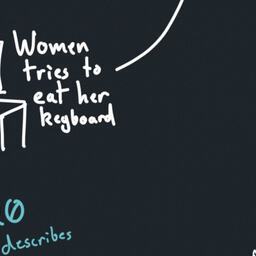 Women
tries to
eat her
keyboard
describes